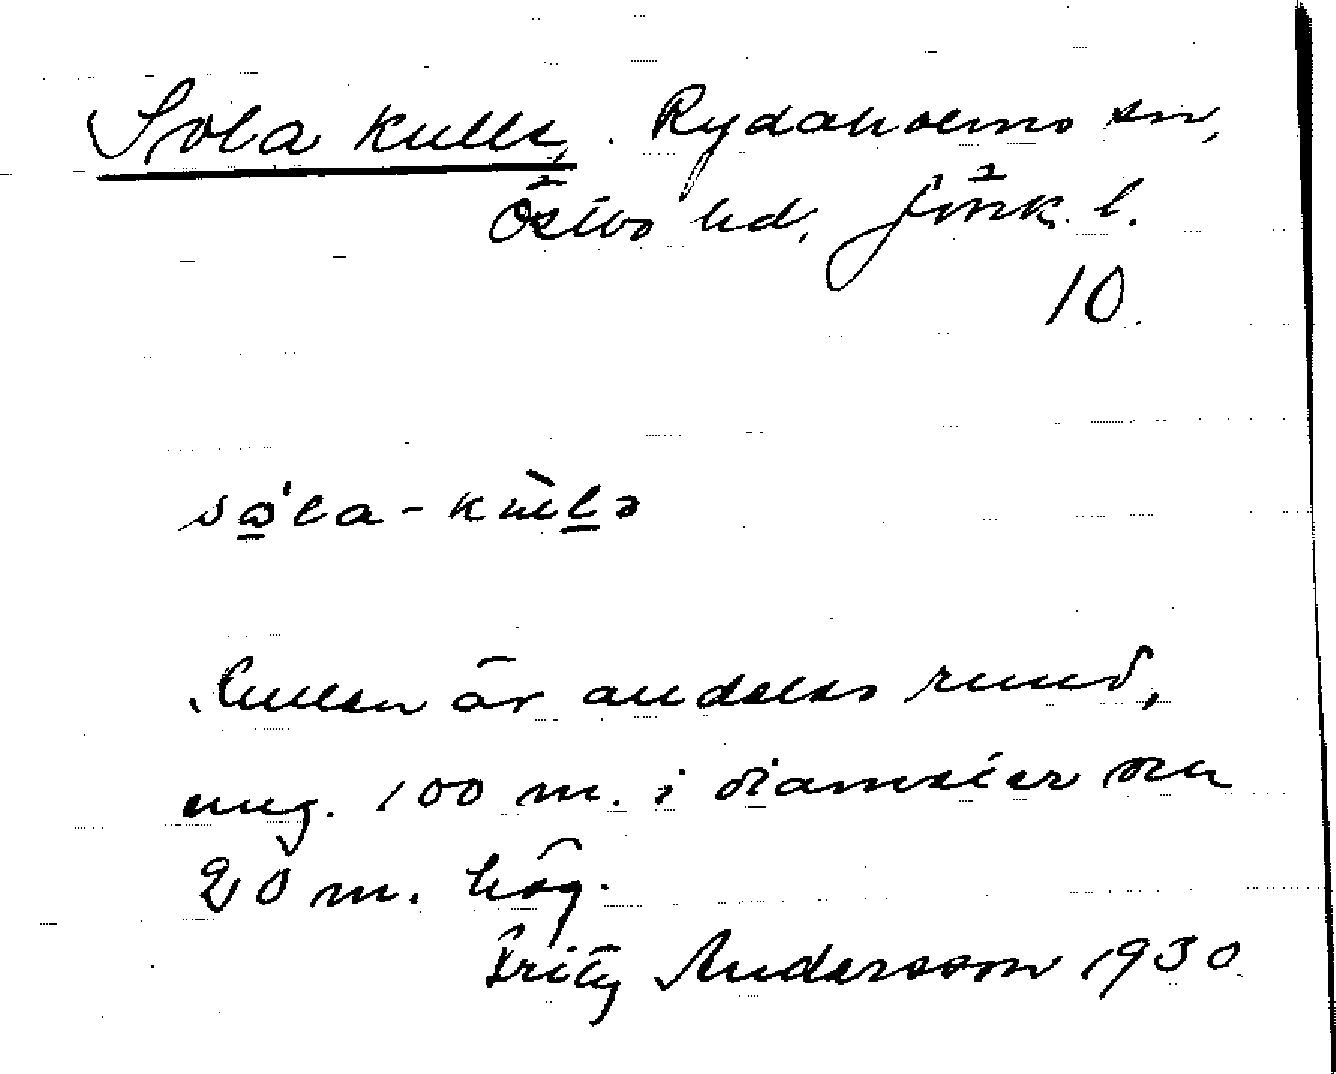 Sola kulle, Rydaholms sn,
Östbo hd, Jönk. l.
10.
Kullen är alldeles rund,
ung. 100 m. i diameter och
20 m. hög.
Fritz Andersson 1930